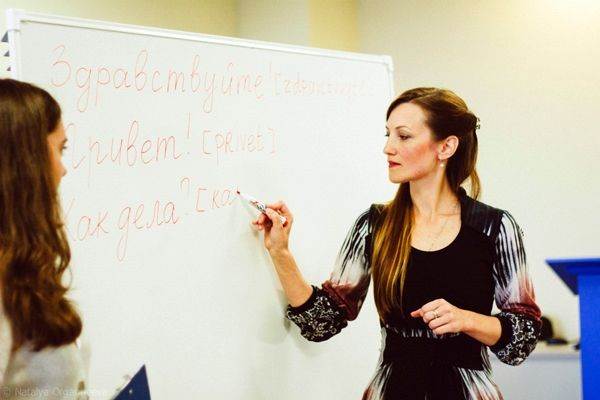 Здравствуйте! [zdravstvujte]
Привет! [privet]
Как дела? [ka
© Natalya Organova